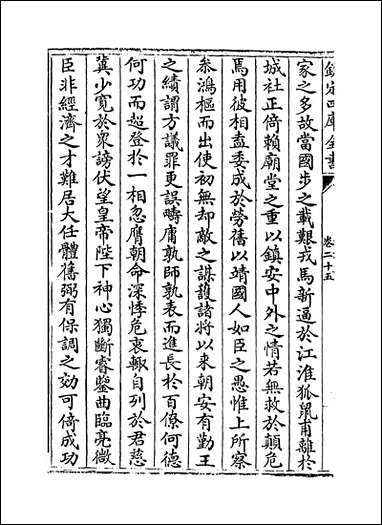 欽定四庫全書
卷二十五
家之多故當國步之載艱戎馬新逼於江淮狐鼠甫離於
城社正倚賴廟堂之重以鎮安中外之情若無救於顛危
焉用彼相盍委成於勞舊以靖國人如臣之愚惟上所察
叅鴻樞而出使初無却敵之謀護諸將以來朝安有勤王
之績謂方議罪更誤疇庸孰師孰表而進長於百僚何德
何功而超登於一相忽膺朝命深悸危衷輙自列於君慈
冀少寛於衆謗伏望皇帝陛下神心獨斷睿鑒曲臨亮微
臣非經濟之才難居大任體舊弼有保調之効可倚成功